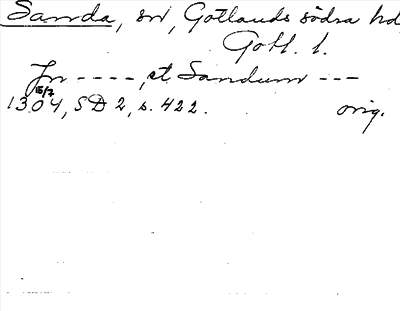 Sanda, sn, Gotlands södra hd,
Gotl. l.
Jn ----, et Sandum ---
15/7
1304, SD 2, s. 422. orig.